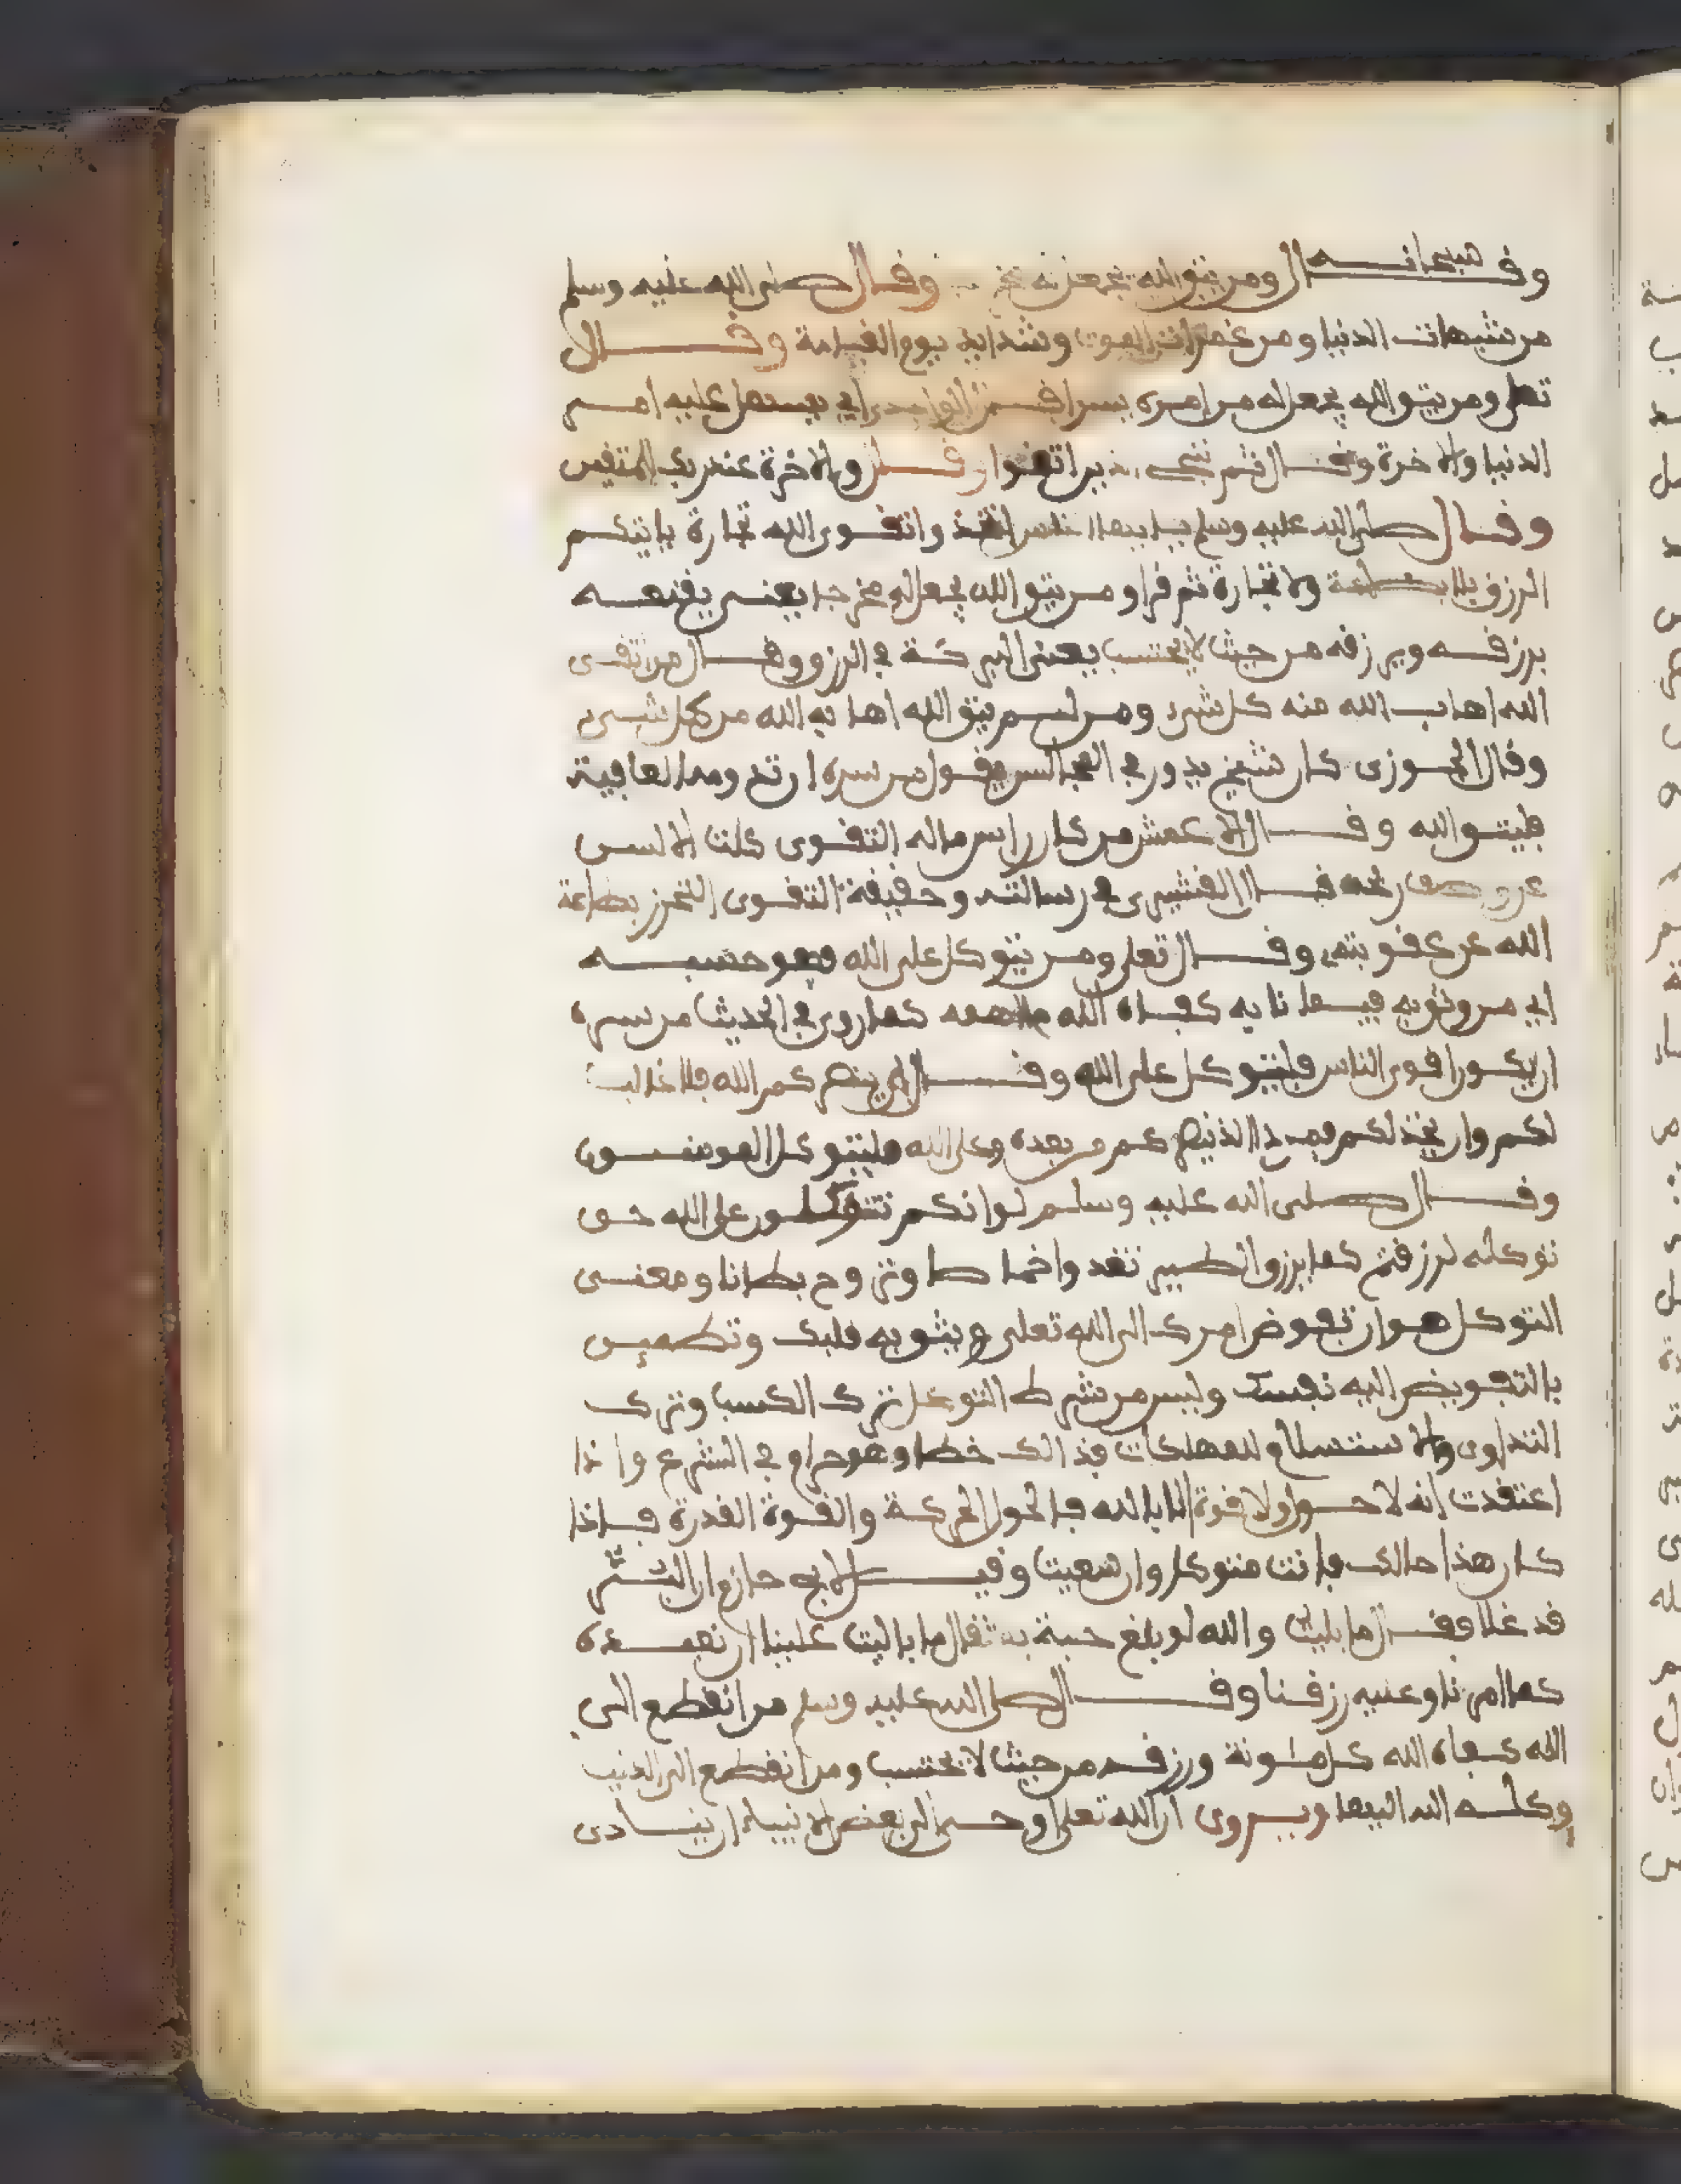 وقال سبحانه ومن يتق الله يجعل له مخر وقال صلى الله عليه وسلم
من شبهات الدنيا ومن غمرات الموت وشدايد يوم القيامة وقال
تعلى ومن يتق الله يجعل له من امره يسرا قال الواحدى اي يسهل عليه امر
الدنيا والاخرة وقال ثم ننجى الذين اتقوا وقال والاخرة عند ربك للمتقين
وقال صلى الله عليه وسلم يا ايها الناس اتخذوا تقوى الله تجارة ياتيكم
الرزق بلا بضاعة ولا تجارة ثم قرا ومن يتق الله يجعل له مخرجا يعنى يقنعه
برزقه ويرزقه من حيث لا يحتسب يعنى البركة في الرزق وقال من اتقى
الله اهاب الله منه كل شيء ومن لم يتق الله اهابه الله من كل شيء
وقال الجوزى كان شيخ يدور في المجالس يقول من سره ان تدوم له العافية
فليتق الله وقال الاعمش من كان راس ماله التقوى كلت الالسن
عن وصف ربحه قال القشيرى في رسالته وحقيقة التقوى التحرز بطاعة
الله عن عقوبته وقال تعلى ومن يتوكل على الله فهو حسبه
اي من وثق به فيما نابه كفاه الله ما اهمه كما روي في الحديث من سره
ان يكون اقوى الناس فليتوكل على الله وقال ان ينصركم الله فلا غالب
لكم وان يخذلكم فمن ذا الذي ينصركم من بعده وعلى الله فليتوكل المومنون
وقال صلى الله عليه وسلم لو انكم تتوكلون على الله حق
توكله لرزقتم كما يرزق الطير تغدوا خماصا وتروح بطانا ومعنى
التوكل هو ان تفوض امرك الى الله تعلى ويثق به قلبك وتطمين
بالتفويض اليه نفسك وليس من شرط التوكل ترك الكسب وترك
التداوى والاستسلام للمهلكات فذالك خطا وهو حرام في الشرع واذا
اعتقدت انه لا حول ولا قوة الا بالله فالحول الحركة والقوة القدرة فاذا
كان هذا حالك فانت متوكل وان سعيت وقيل لابى حازم ان السعر
قد غلا فقال ما باليت والله لو بلغ حبة بمثقال ما باليت علينا ان نعبده
كما امرنا وعليه رزقنا وقال صلى الله عليه وسلم من انقطع الى
الله كفاه الله كل مئونة ورزقه من حيث لا يحتسب ومن انقطع الى الدنيا
وكله الله اليها ويروى ان الله تعلى اوحى الى بعض الانبياء ان ينادى